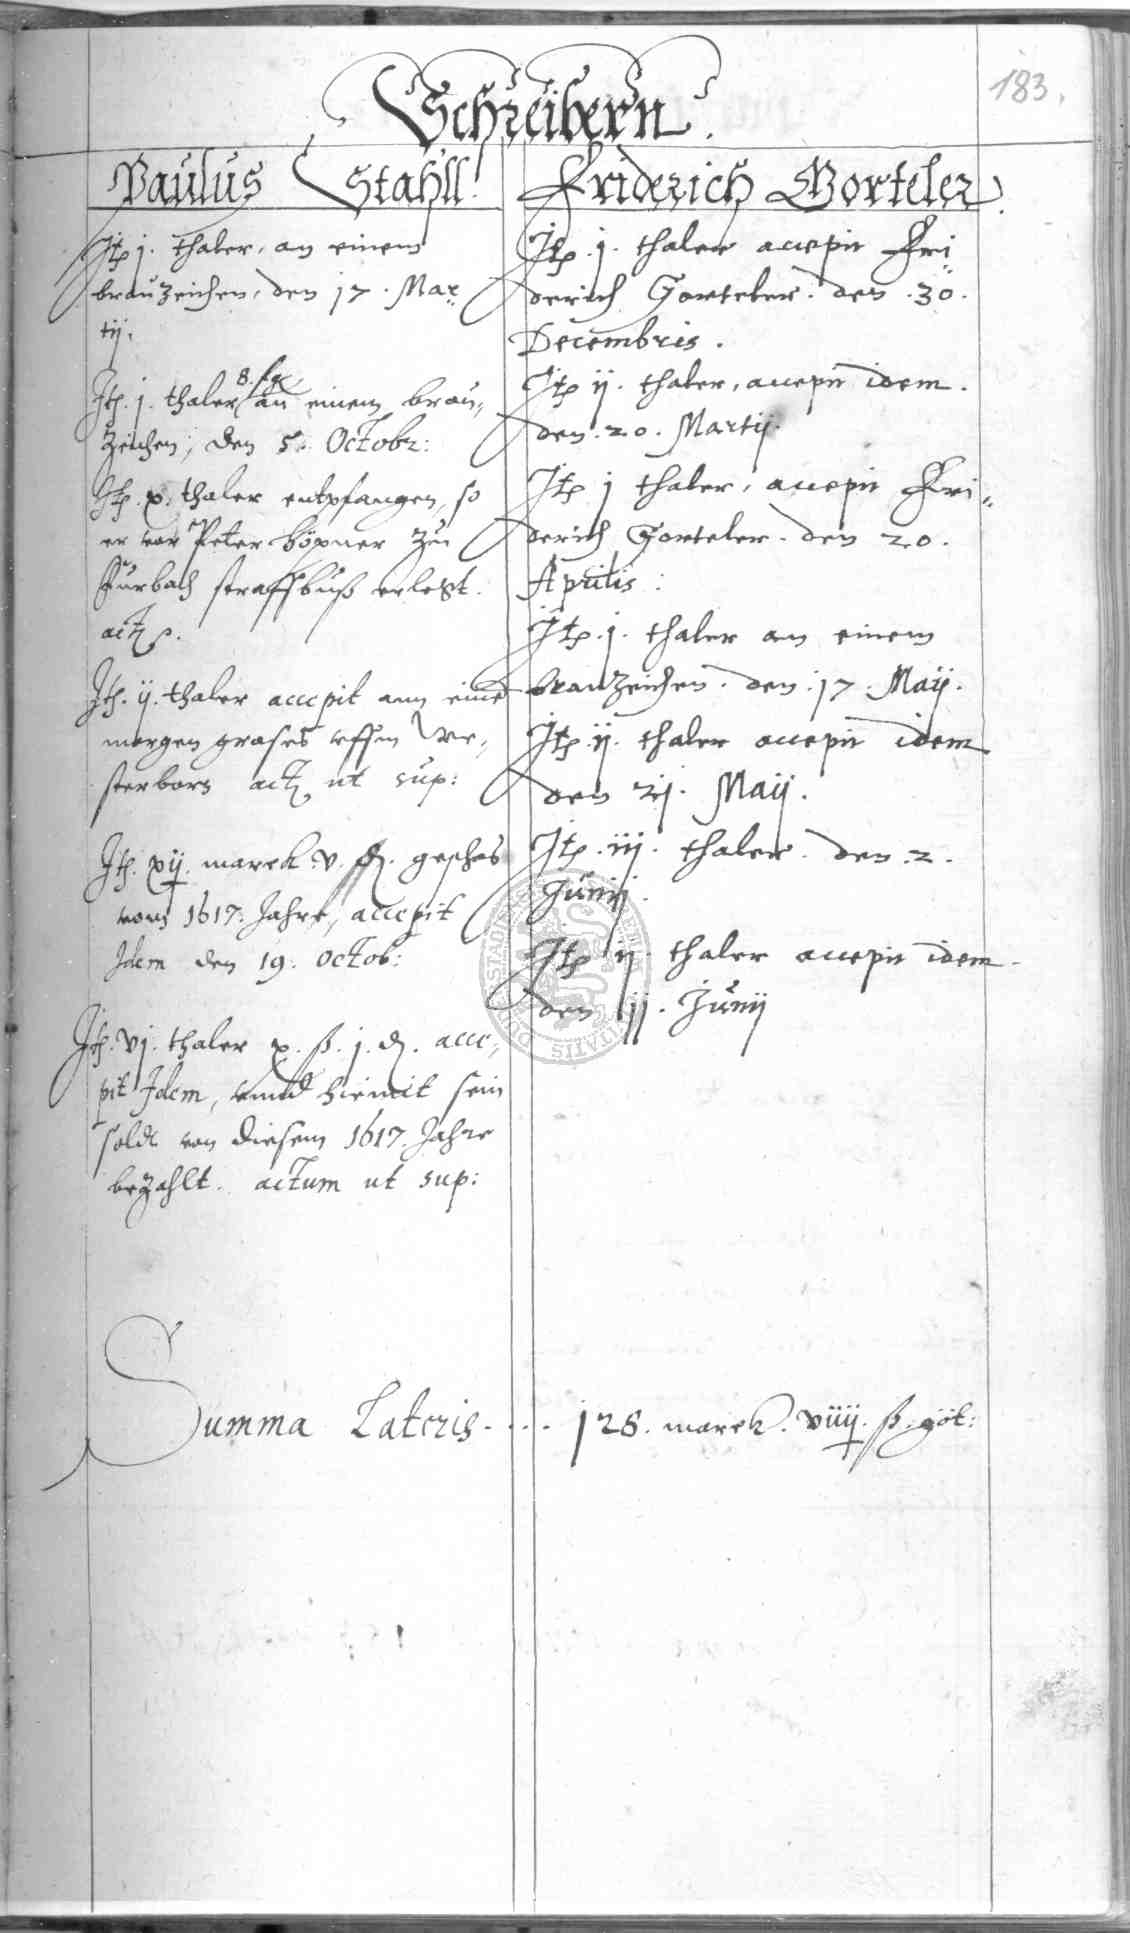 183.
Schreibern.
Paulus Stahll
Jtp j. thaler, an einem
brauzeichen, den 17. Mar
tij.
Jtp. j. thaler 8. fg. an einem brau„
zeichen, den 5. Octobr:
Jtp. x. thaler entpfangen, so
er vor Peter Höpner zu
straffbuß erlegt.
act
Jtp. ij. thaler accepit ann eine
morgen grases uffm We„
sterborn act ut sup:
Jtp. xij. marck. v. ß. gesches
vom 1617. Jahre, accepit
Idem den 19. Octob:
Jtp. vj. thaler x. ß. j. d. acce„
pit Idem, unnd hiemit sein
soldt von diesem 1617. Jahre
bezahlt. actum ut sup:
Friderich Gorteler.
Jtp. j. thaler accepit Fri
derich Gorteler. den .30.
Decembris.
Jtp ij. thaler, accepit idem.
den .20. Martij.
Jtp j thaler, accepit Fri„
derich Gorteler. den 20.
Aprilis:
Jtp. j. thaler an einem
brauzeichen. den .17. Maij.
Jtp. ij. thaler accepit idem
den 21. Maij.
Jtp. iij. thaler. den .2.
Junij.
Jtp ij. thaler accepit idem.
den 11. Junij
Summa Lateris.... 128. marck. viiij. ß. göt: